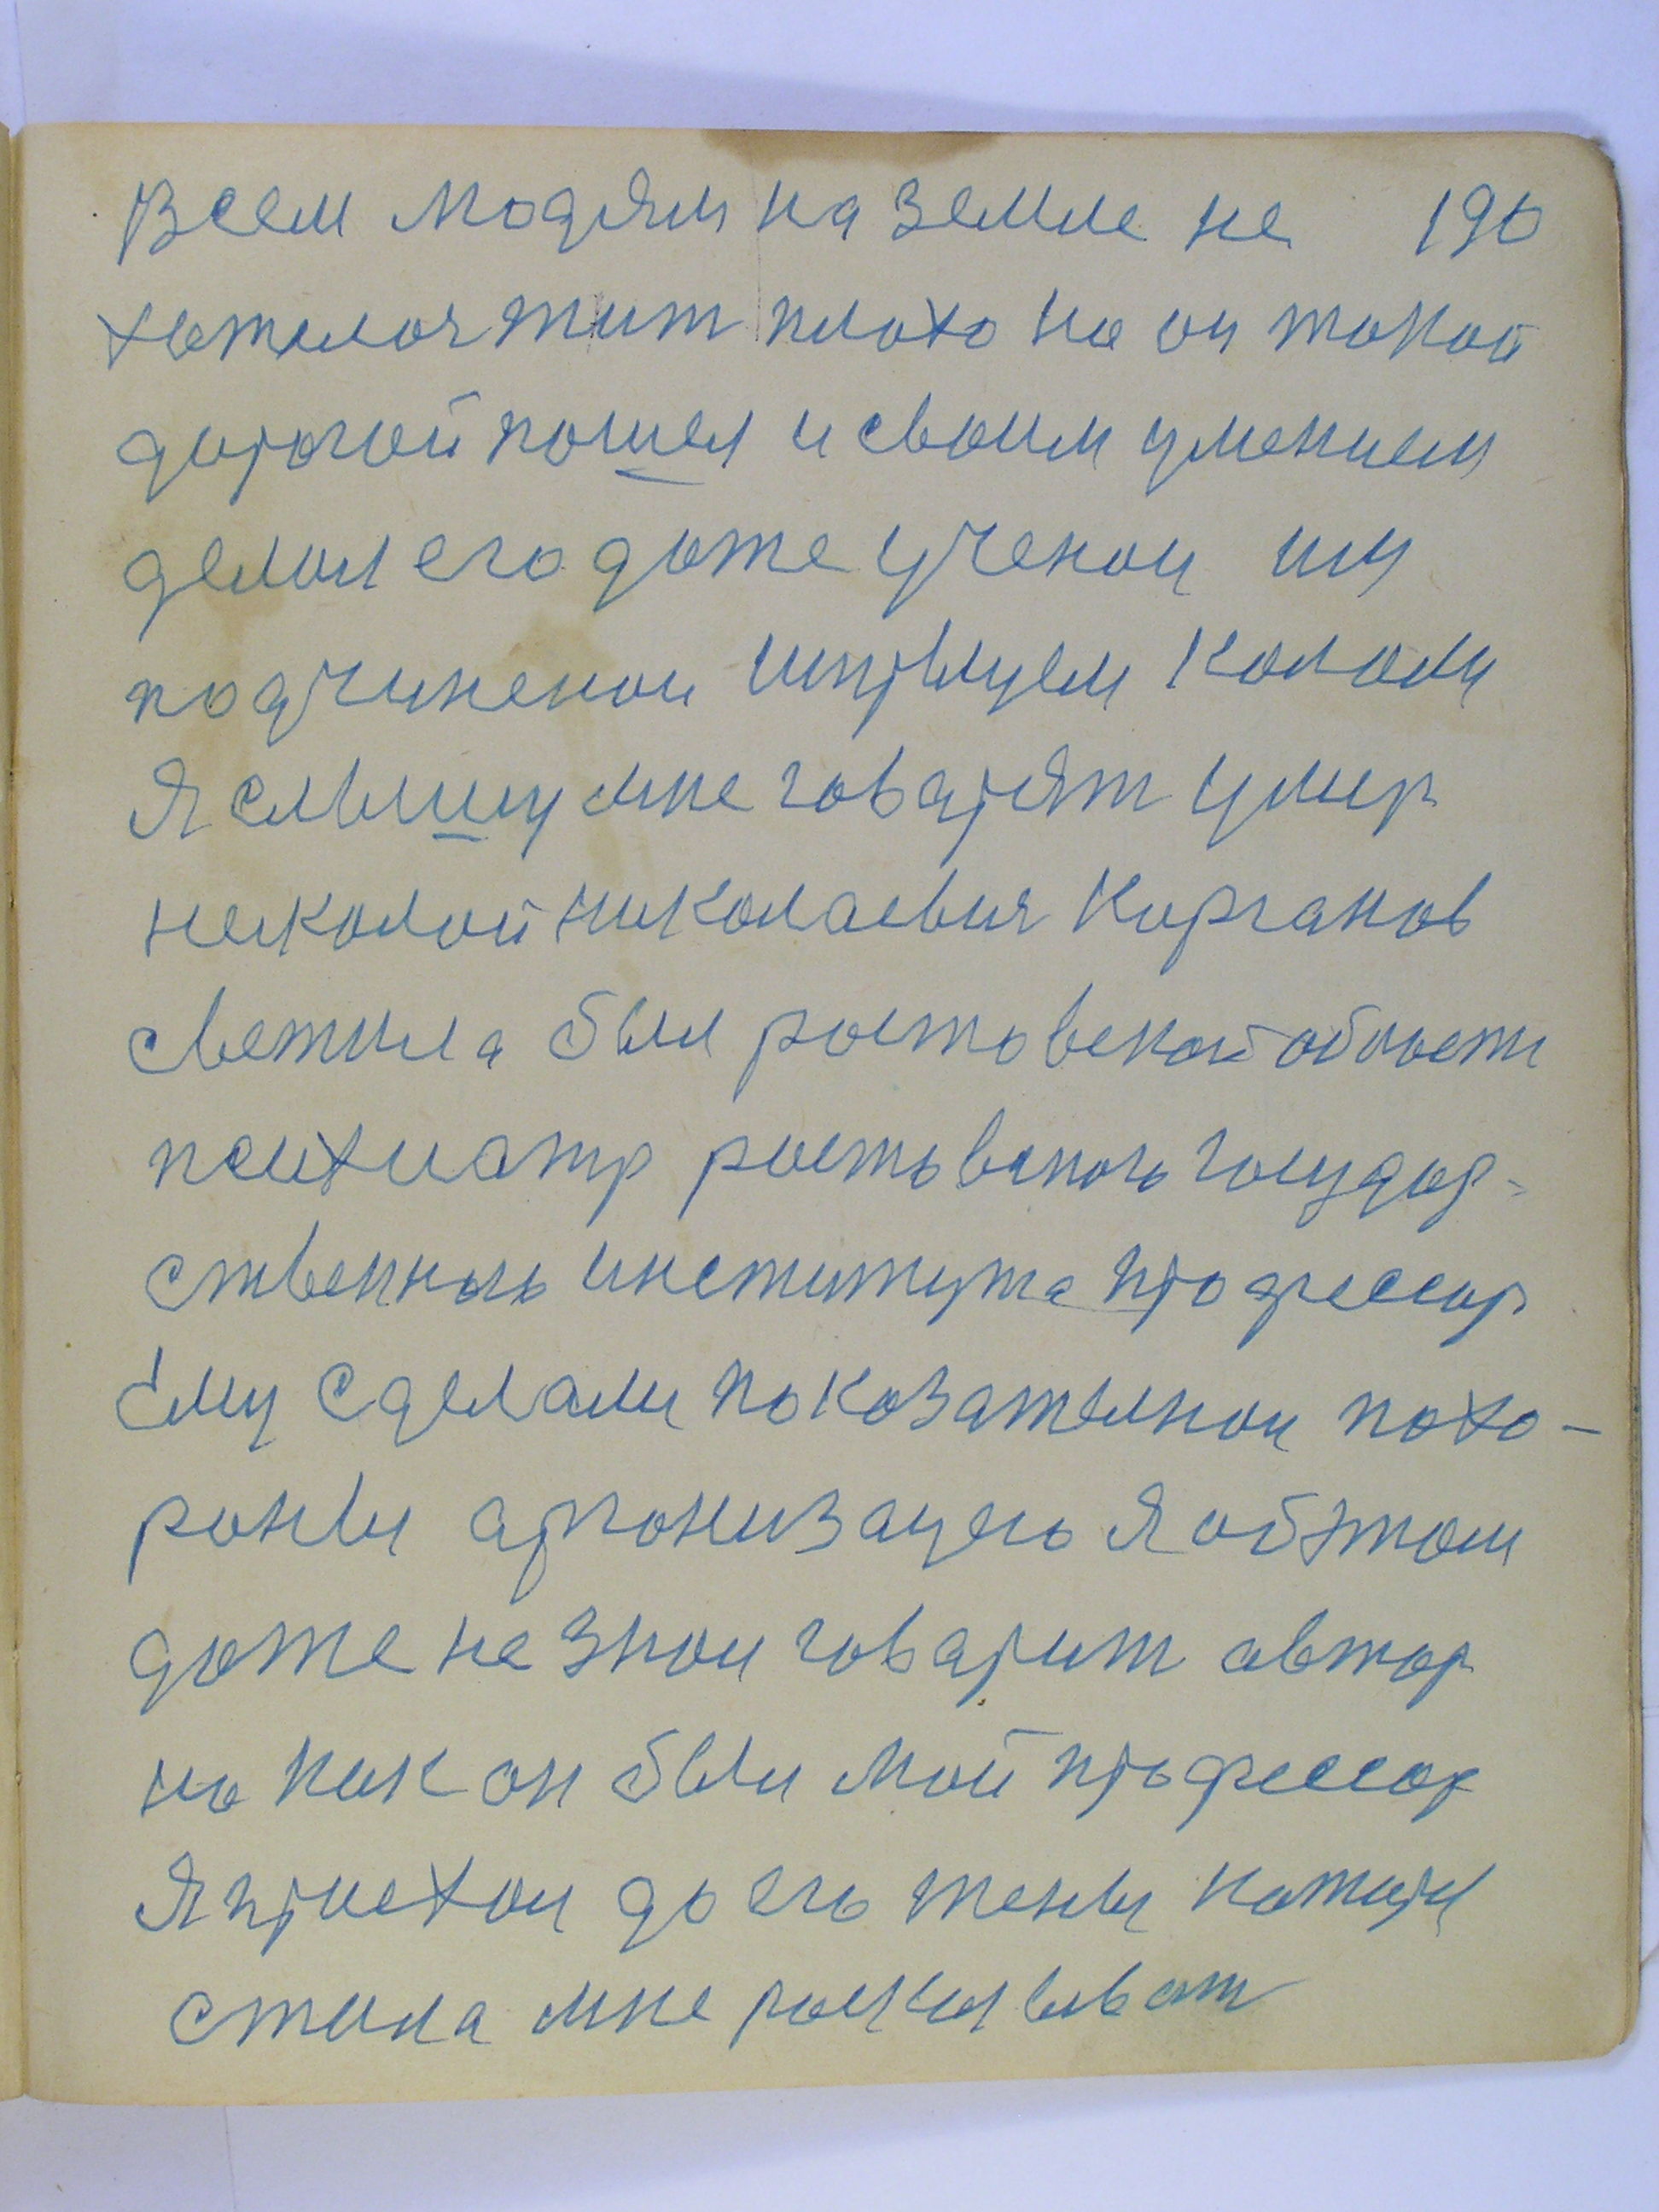 Всем людям на земле не 190
хотелоя жит плохо но он такой
дорогой пошел и своим умением
делал его даже ученои им
подчиненои
Я слышу мне говарят умир
Неколай николаевич Кирганов
светила был ростовской област
психиатр ростовского государ-
ственного института профессор
Ему сделали показателнои похо-
роны арганизацею Я об этом
даже не знои говарит автор
но как он был мой профессор
Я приехои до его жены
стала мне расказыват